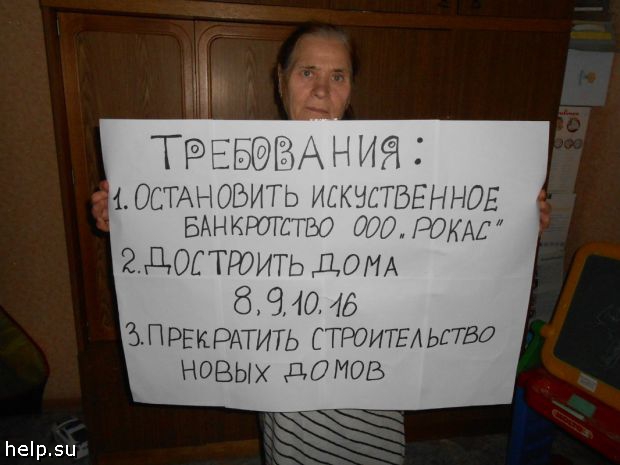 ТРЕБОВАНИЯ:
1. ОСТАНОВИТЬ ИСКУСТВЕННОЕ
БАНКРОТСТВО ООО „РОКАС“
2. ДОСТРОИТЬ ДОМА
8, 9, 10, 16
3. ПРЕКРАТИТЬ СТРОИТЕЛЬСТВО
НОВЫХ ДОМОВ
help.su